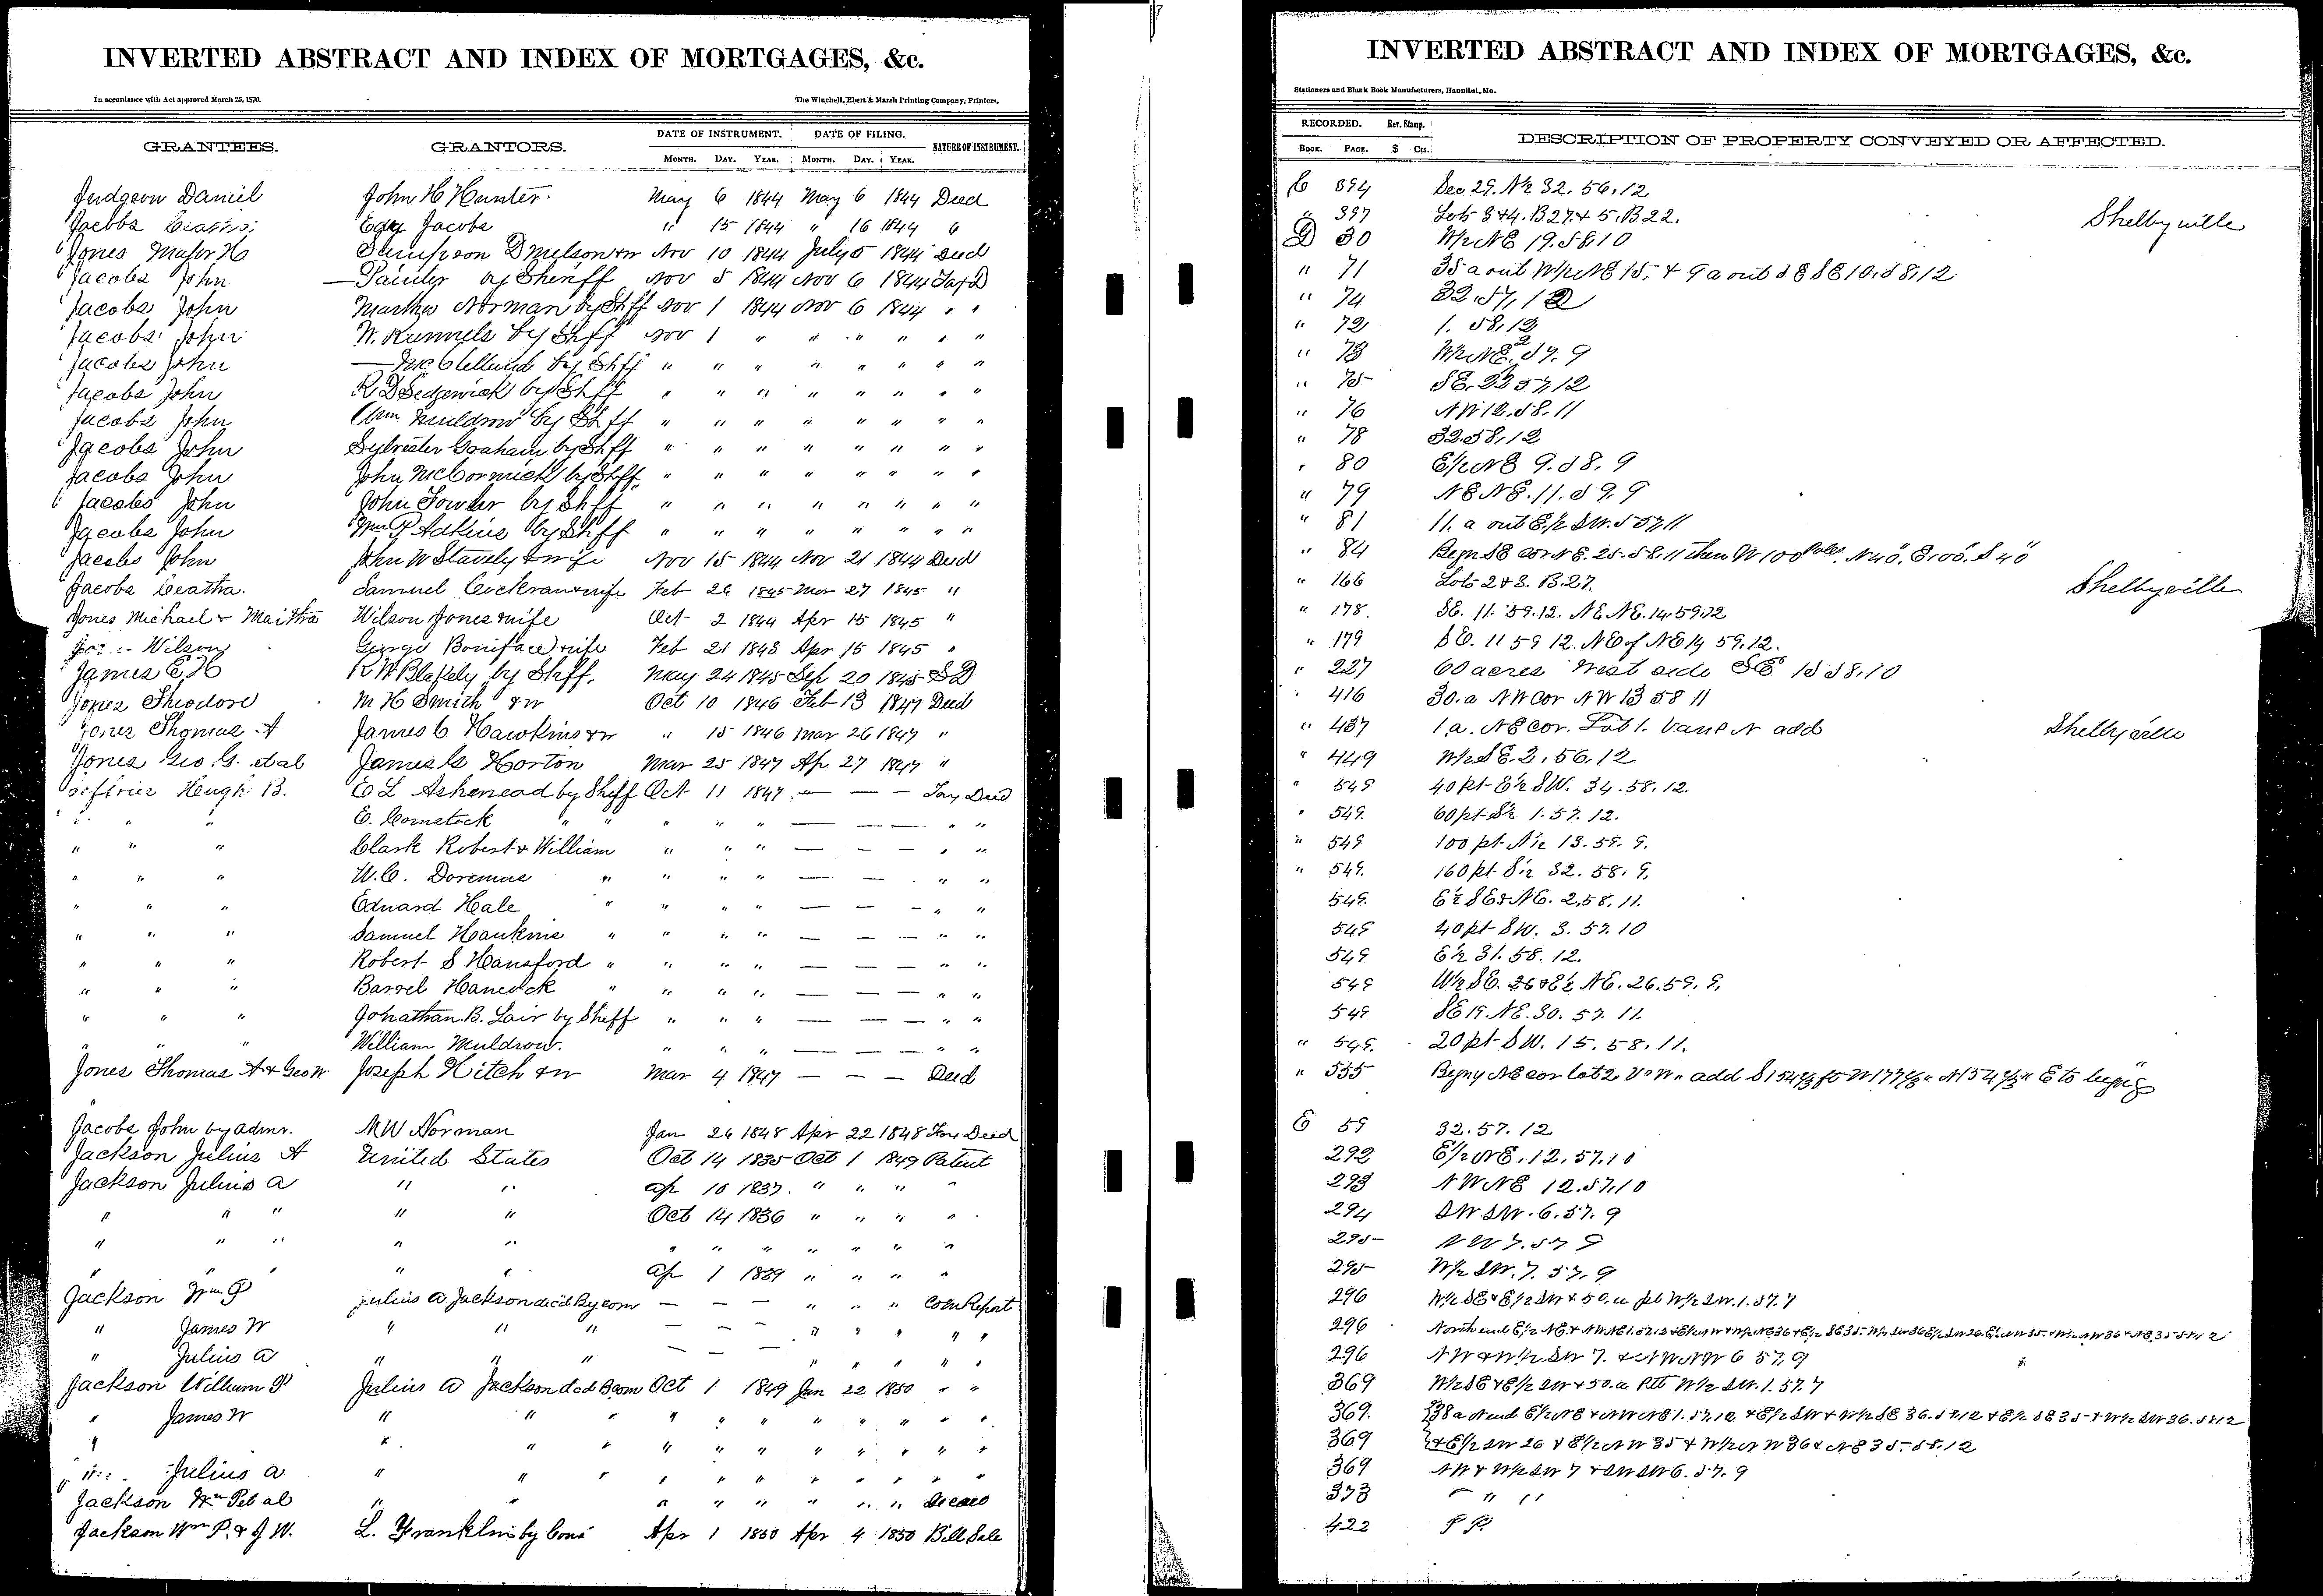 INVERTED ABSTRACT AND INDEX OF MORTGAGES, &c.
In accordance with Act approved March 25, 1870. The Winchell, Ebert & Marsh Printing Company, Printers,
GRANTEES. GRANTORS. DATE OF INSTRUMENT. DATE OF FILING. NATURE OF INSTRUMENT.
MONTH. DAY. YEAR. MONTH. DAY. YEAR.
Judgson Daniel John H Hunter. May 6 1844 May 6 1844 Deed
Jacobs Jacobs " 15 1844 " 16 1844 "
Jones Major H Nov 10 1844 July 5 1844 Deed
Jacobs John — Painter by Sheriff Nov 5 1844 Nov 6 1844
Jacobs John Martha Norman by Shff Nov 1 1844 Nov 6 1844 " "
Jacobs John W. Runnels by Shff Nov 1 " " " " " "
Jacobs John — McClelland by Shff " " " " " " " "
Jacobs John R D Sedgewick by Shff " " " " " " " "
Jacobs John Wm Muldrow by Shff " " " " " " " "
Jacobs John Sylvester Graham by Shff " " " " " " " "
Jacobs John John McCormick by Shff. " " " " " " " "
Jacobs John John Fowler by Shff " " " " " " " "
Jacobs John Wm P Adkins by Shff " " " " " " " "
Jacobs John John W Stavely & wife Nov 15 1844 Nov 21 1844 Deed
Jacobs Leatha. Samuel Cockran & wife Feb 26 1845 Mar 27 1845 "
Jones Michael & Maitha Wilson Jones & wife Oct 2 1844 Apr 15 1845 "
Wilson George Boniface & wife Feb 21 1843 Apr 15 1845 "
James E. H R W Blakely by Shff. May 24 1845 Sep 20 1845 S D
Jones Theodore M H Smith & w Oct 10 1846 Feb 13 1847 Deed
Jones Thomas A James C Hawkins & w " 15 1846 Mar 26 1847 "
Jones Geo. G. et al James G Horton Mar 25 1847 Ap 27 1847 "
Jeffries Heugh B. E L Ashmead by Sheff Oct 11 1847 — — — Tax Deed
" " " E. Comstock " " " " " — — — " "
" " " Clark Robert & William " " " — — — " "
" " " W. C. Doremus " " " " — — — " "
" " " Edward Hale " " " " — — — " "
" " " Samuel Hankins " " " " — — — " "
" " " Robert S Hansford " " " " — — — " "
" " " Barrel Hancock " " " " — — — " "
" " " Jonathan. B. Lair by Sheff " " " — — — " "
" " " William Muldrow. " " " — — — " "
Jones Thomas A & Geo W Joseph Hitch & w Mar 4 1847 — — — Deed
Jacobs John by admr. M W Norman Jan 26 1848 Apr 22 1848 Tax Deed
Jackson Julius A United States Oct 14 1835 Oct 1 1849 Patent
Jackson Julius A " " Ap 10 1837. " " " "
" " " " " Oct 14 1836 " " " "
" " " " " " " " " " " "
" " " " " Ap 1 1839 " " " "
Jackson Wm P Julius A Jackson decd By com — — — " " " Com Report
" James W " " " — — — " " " " "
" Julius A " " " — — — " " " " "
Jackson William P Julius A Jackson decd B com Oct 1 1849 Jan 22 1850 " "
" James W " " " " " " " " " " "
" " " " " " " " " " " "
" Julius A " " " " " " " " " " "
Jackson Wm P et al " " " " " " " " Decree
Jackson Wm P. & J W. L. Franklin by Cons Apr 1 1850 Apr 4 1850 Bill Sale
INVERTED ABSTRACT AND INDEX OF MORTGAGES, &c.
Stationers and Blank Book Manufacturers, Hannibal, Mo.
RECORDED. Rev. Stamp. DESCRIPTION OF PROPERTY CONVEYED OR AFFECTED.
BOOK. PAGE. $ Cts.
C 394 Sec 29. N½ 32. 56. 12
" 397 Lots 3 & 4. B 27. & 5. B 22. Shelbyville
D 30 W½ NE 19. 58. 10
" 71 35 a out W½ NE 15. & 9 a out SE SE 10. 58. 12
" 74 32. 57. 12
" 72 1. 58. 12
" 73 W½ NE 2 59. 9
" 75 SE. 22 57. 12
" 76 NW 12. 58. 11
" 78 32. 58. 12
" 80 E½ NE 9. 58. 9
" 79 NE NE. 11. 59. 9
" 81 11. a out E½ SW. 5 57 11
" 84 Begn SE cor NE. 25. 58. 11 then W 100 Poles. N 40. E 100. S 40
" 166 Lots 2 & 3. B. 27. Shelbyville
" 178. SE. 11. 59. 12. NE NE. 14. 59. 12
" 179 SE. 11 59 12. NE of NE 14 59. 12.
" 227 60 acres West side SE 15 58. 10
" 416 30. a NW cor NW 13 58 11
" 437 1 a. NE cor. Lot 1. Van P N add Shelbyville
" 449 W½ SE. 2. 56. 12
" 549 40 pt E½ SW. 34. 58. 12.
" 549. 60 pt S½ 1. 57. 12.
" 549 100 pt N½ 13. 59. 9.
" 549. 160 pt S½ 32. 58. 9.
549. E½ SE & NE. 2. 58. 11.
549 40 pt SW. 3. 57. 10
549 E½ 31. 58. 12.
549 W½ SE. 26 & E½ NE. 26. 59. 9.
549 SE 19. NE. 30. 57. 11.
" 549. 20 pt SW. 15. 58. 11.
" 555 Begng NE cor lot 2 add S 154⅔ ft W 177⅔ " N 154⅔ " E to begng "
E 59 32. 57. 12
292 E½ NE. 12. 57. 10
293 NW NE 12. 57. 10
294 SW SW. 6. 57. 9
295 NW 7. 57 9
295 W½ SW. 7. 57. 9
296 W½ SE & E½ SW & 50. a pt W½ SW. 1. 57. 7
296 North end E½ NE & NW NE 1. 57. 12
296 NW & W½ SW 7. & NW NW 6 57. 9
369 W½ SE & E½ SW & 50. a Pt W½ SW. 1. 57. 7
369. 338 a N end E½ NE & NW NE 1. 57. 12 & E½ SW & W½ SE 36. 58 12 & E½ SE 35 & W½ SW 36. 58 12
369 & E½ SW 26 & E½ NW 35 & W½ NW 36 & NE 35. 58. 12
369 NW & W½ SW 7 & SW SW 6. 57. 9
373 " " "
422